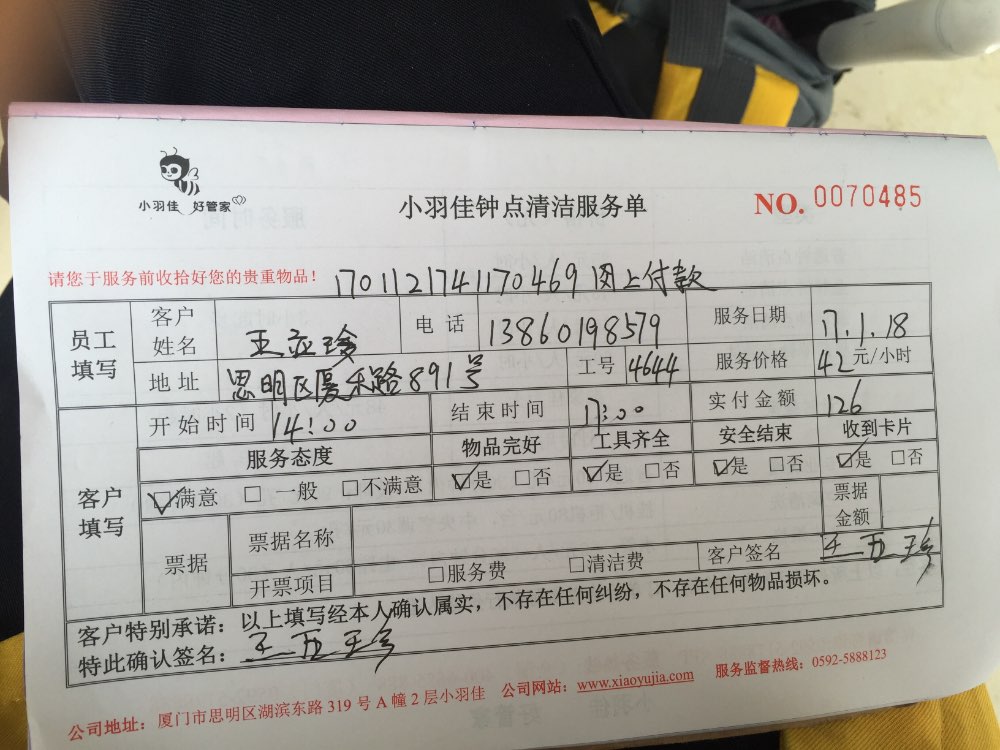 小羽佳 好管家
小羽佳钟点清洁服务单
NO. 0070485
请您于服务前收拾好您的贵重物品！
1701121741170469 网上付款
员工填写 客户姓名 王亚珍 电话 13860198579 服务日期 17.1.18
地址 思明区厦禾路891号 工号 4644 服务价格 42元/小时
客户填写 开始时间 14:00 结束时间 17:00 实付金额 126
服务态度 物品完好 工具齐全 安全结束 收到卡片
☑满意 □一般 □不满意 ☑是 □否 ☑是 □否 ☑是 □否 ☑是 □否
票据 票据名称 票据金额
开票项目 □服务费 □清洁费 客户签名
客户特别承诺：以上填写经本人确认属实，不存在任何纠纷，不存在任何物品损坏。
特此确认签名：
公司地址：厦门市思明区湖滨东路319号A幢2层小羽佳 公司网站：www.xiaoyujia.com 服务监督热线：0592-5888123